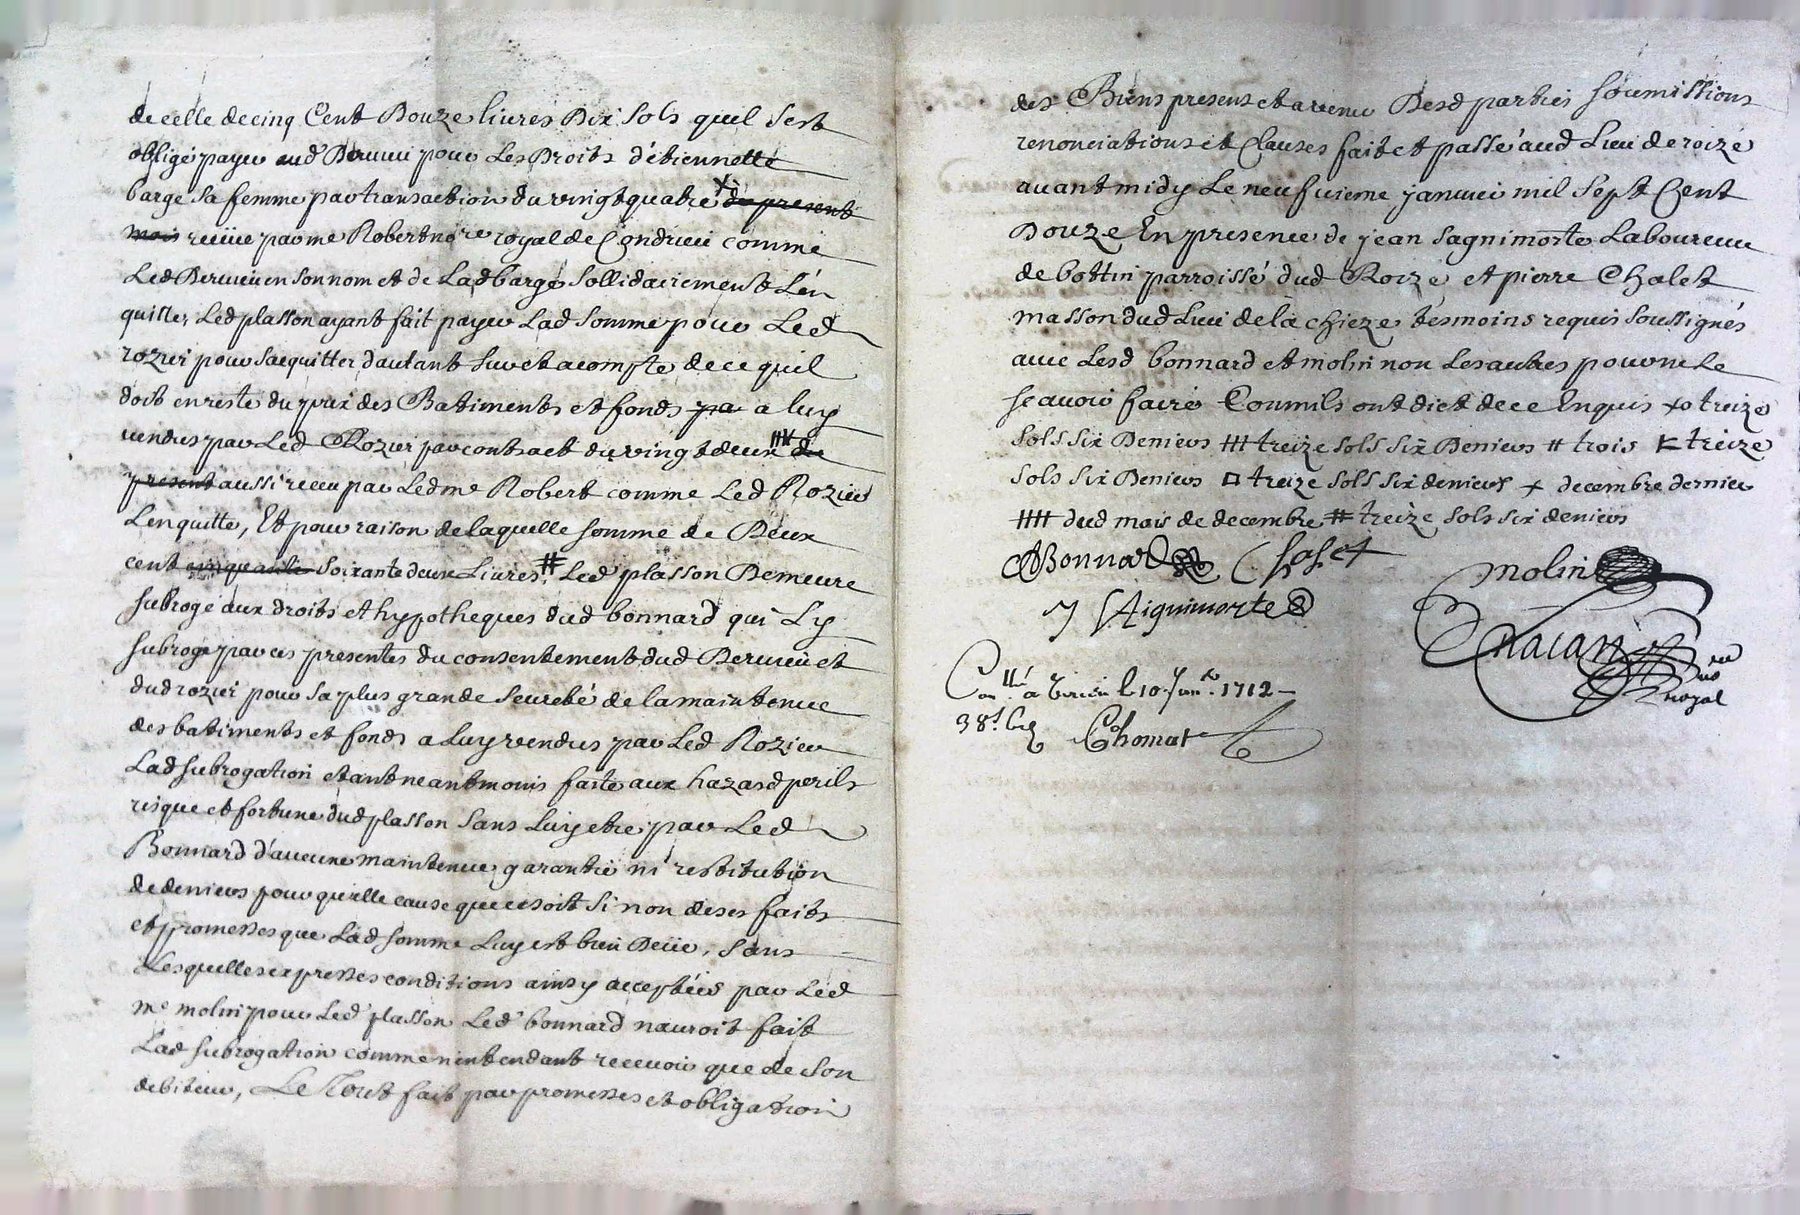 de celle de cinq Cent Douze livres Dix sols quil sest
obligé payer aud Bervier pour Les Droits d'étiennette
barge sa femme par transaction du vingt quatre × du present
mois reçüe par me Robert nore royal de Condrieu comme
Led Bervier en son nom et de Lad barge sollidairement Len
quitter Led plasson ayant fait payer Lad somme pour Led
rozier pour sacquitter dautant sur et acompte de ce quil
doit en reste du prix des Batiments et fonds pa a luy
vendus par Led Rozier par contract du vingt deux du
present aussi receu par Led me Robert comme Led Rozier
Lenquitte, Et pour raison de laquelle somme de Deux
cent cinquante soixante deux Livres, # Led plasson Demeure
subrogé aux droits et hypotheques dud bonnard qui Ly
subroge par ces presentes du consentement dud Bervier et
dud rozier pour sa plus grande seureté de la maintenue
des batiments et fonds a Luy vendus par Led Rozier
Lad subrogation etant neantmoins faite aux hazard perils
risque et fortune dud plasson sans Luy etre par Led
Bonnard d'aucune maintenue garantie ni restitution
de deniers pour quelle cause que ce soit si non de ses faits
et promesses que Lad somme Luy est bien Deüe, sans
Lesquelles expresses conditions ainsy acceptées par Led
me molin pour Led plasson Led bonnard nauroit fait
Lad subrogation comme nentendant recevoir que de son
debiteur, Le Tout fait par promesses et obligation
des Biens presents et avenir Desd parties soumissions
renonciations et Clauses fait et passé aud Lieu de roizé
avant midy Le neufvieme janvier mil sept Cent
Douze En presence de jean sagnimorte Laboureur
de bottin parroisse dud Roizé et pierre Chalet
masson dud Lieu de la chieze tesmoins requis soussignés
avec Lesd bonnard et molin non Les autres pour ne Le
scavoir faire Comm ils ont dict de ce Enquis treize
sols six Deniers treize sols six Deniers # trois treize
sols six Deniers □ treize sols six deniers × decembre dernier
dud mois de decembre # treize sols six deniers
Bonnard Chalet molin
J SAignimorte
royal
Conllé a le 10 Janr. 1712
38s Chomat